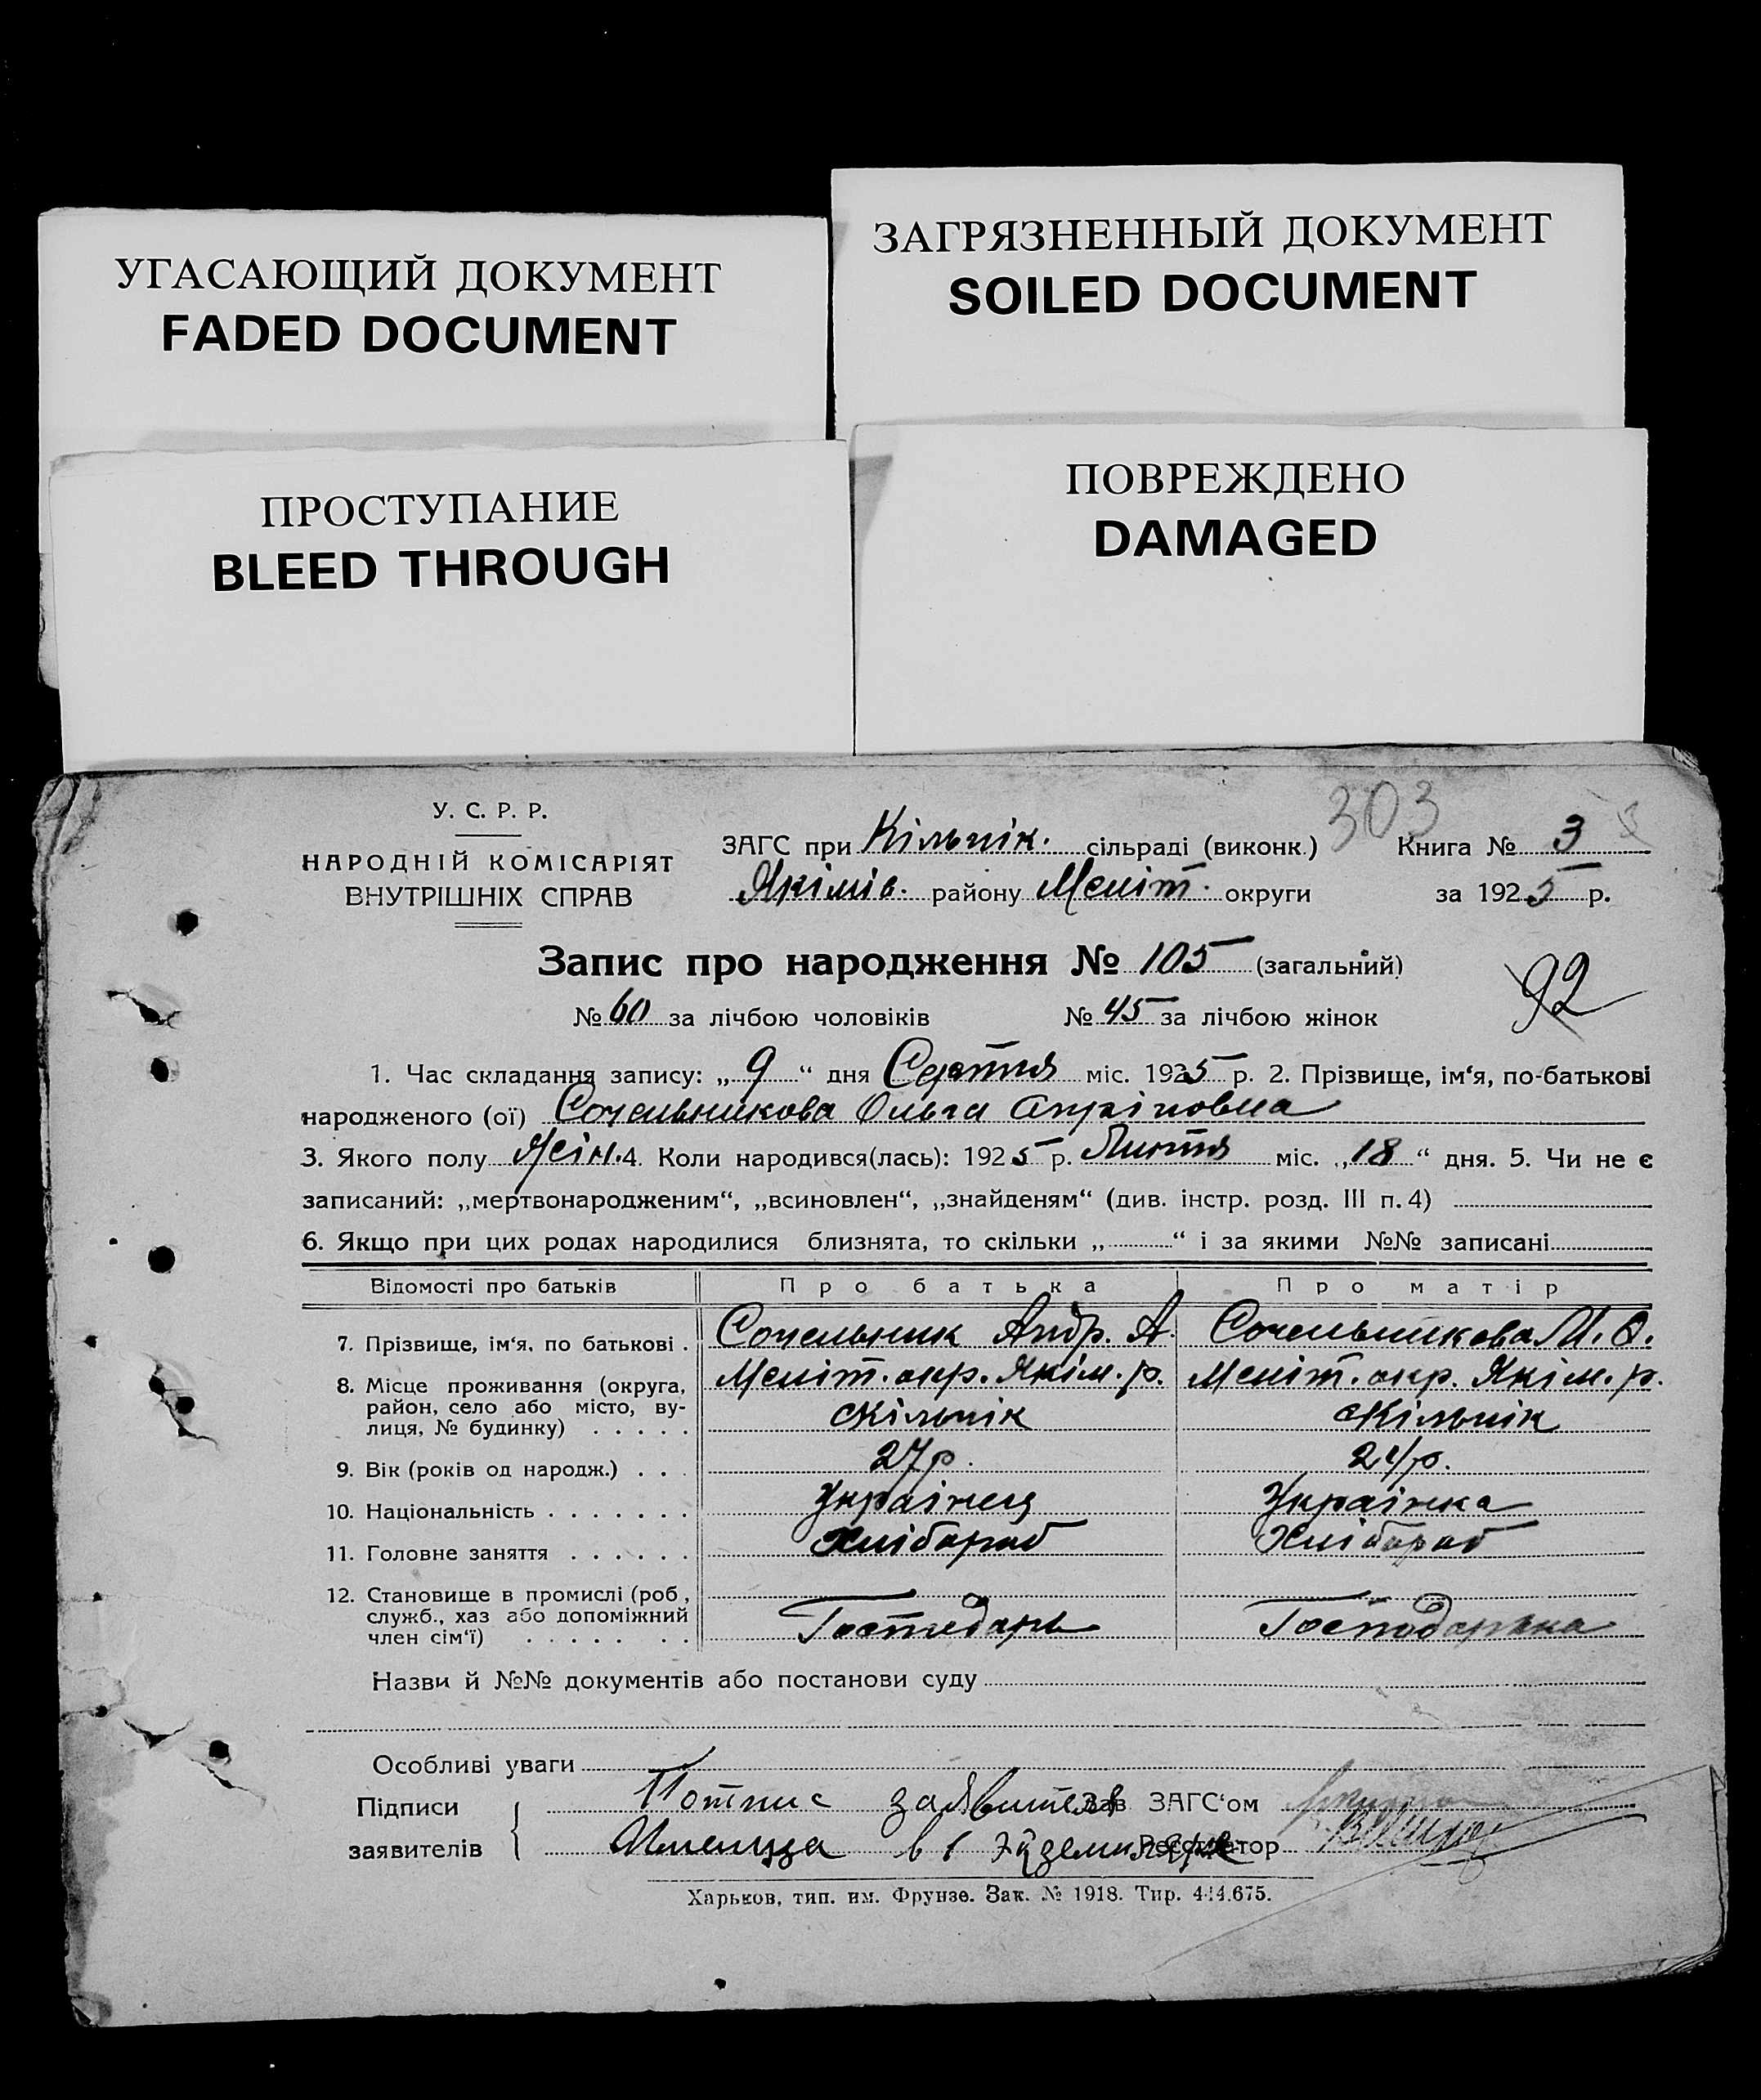 УГАСАЮЩИЙ ДОКУМЕНТ
FADED DOCUMENT
ЗАГРЯЗНЕННЫЙ ДОКУМЕНТ
SOILED DOCUMENT
ПРОСТУПАНИЕ
BLEED THROUGH
ПОВРЕЖДЕНО
DAMAGED
У. С. Р. Р.
НАРОДНІЙ КОМІСАРІЯТ
ВНУТРІШНІХ СПРАВ
303
ЗАГС при Кільпік. сільраді (виконк.) Книга № 3
Якімів. району Меліт. округи за 1925 р.
Запис про народження № 105 (загальний)
92
№ 60 за лічбою чоловіків № 45 за лічбою жінок
1. Час складання запису: „ 9 “ дня Серпня міс. 1925 р. 2. Прізвище, ім‘я, по-батькові
народженого (ої) Сочельникова Ольга
3. Якого полу Жін. 4. Коли народився(лась): 1925 р. Лютня міс. „18“ дня. 5. Чи не є
записаний: „мертвонародженим“, „всиновлен“, „знайденям“ (див. інстр. розд. III п. 4)
6. Якщо при цих родах народилися близнята, то скільки „ “ і за якими №№ записані
Відомості про батьків Про батька Про матір
7. Прізвище, ім‘я, по батькові . Сочельник Андр. А. Сочельникова М. О.
8. Місце проживання (округа, район, село або місто, вулиця, № будинку) . . . . . Меліт. окр. Якім. р. Кільпік Меліт. окр. Якім. р. Кільпік
9. Вік (років од народж.) . . . 27 р. р.
10. Національність . . . . . . . Українец Українка
11. Головне заняття . . . . . . Хлібороб Хлібороб
12. Становище в промислі (роб., служб., хаз або допоміжний член сім‘ї) . . . . . . . Господарь Господарка
Назви й №№ документів або постанови суду
Особливі уваги
Підписи заявителів
Потпис заявителя Зав ЗАГС‘ом
в 1 Реєстратор
Харьков, тип. им. Фрунзе. Зак. № 1918. Тир. 444.675.